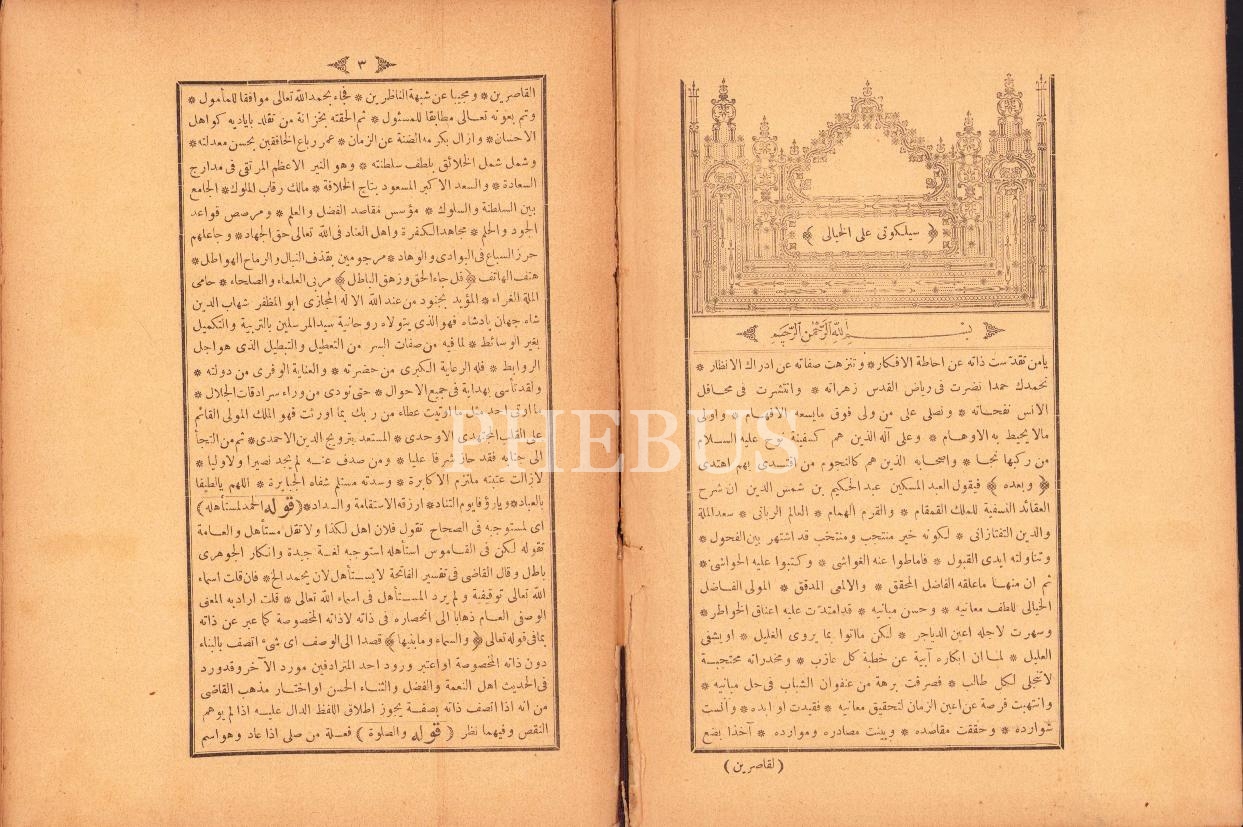 ﴿ سيلكوتى على الخيالى ﴾
بسم الله الرحمن الرحيم
يامن تقدست ذاته عن احاطة الافكار * وتنزهت صفاته عن ادراك الانظار *
نحمدك حمدا نضرت فى رياض القدس زهراته * وانتشرت فى محافل
الانس نفحاته * ونصلى على من ولى فوق مايسعه الافهام * واولى
مالا يحيط به الاوهام * وعلى آله الذين هم كسفينة نوح عليه السلام
من ركبها نجا * واصحابه الذين هم كالنجوم من اقتدى بهم اهتدى
﴿ وبعده ﴾ فيقول العبد المسكين عبد الحكيم بن شمس الدين ان شرح
العقائد النسفية للملك القمقام * والقرم الهمام * العالم الربانى * سعد الملة
والدين التفتازانى * لكونه خير منتجب ومنتخب قد اشتهر بين الفحول *
وتناولته ايدى القبول * فاماطوا عنه الغواشى * وكتبوا عليه الحواشى *
ثم ان منها ماعلقه الفاضل المحقق * والالمعى المدقق * المولى الفاضل
الخيالى للطف معانيه * وحسن مبانيه * قدامتدت عليه اعناق الخواطر *
وسهرت لاجله اعين الدياجر * لكن مااتوا بما يروى الغليل * او يشفى
العليل * لما ان ابكاره آبية عن خطبة كل عازب * ومخدراته محتجبة
لا تتجلى لكل طالب * فصرفت برهة من عنفوان الشباب فى حل مبانيه *
وانتهبت فرصة عن اعين الزمان لتحقيق معانيه * فقيدت اوابده * وآنست
شوارده * وحققت مقاصده * وبينت مصادره وموارده * آخذا بضبع
( لقاصرين )
٣
القاصرين * ومجيبا عن شبهة الناظرين * فجاء بحمد الله تعالى موافقا للمأمول *
وتم بعونه تعالى مطابقا للمسئول * ثم الحقته بخزانة من تقلد باياديه كواهل
الاحسان * وازال بكرمه الضنة عن الزمان * عمر رباع الخافقين بحسن معدلته *
وشمل شمل الخلائق بلطف سلطنته * وهو النير الاعظم المرتقى فى مدارج
السعادة * والسعد الاكبر المسعود بتاج الخلافة * مالك رقاب الملوك * الجامع
بين السلطنة والسلوك * مؤسس مقاصد الفضل والعلم * ومرصص قواعد
الجود والحلم * مجاهد الكفرة واهل العناد فى الله تعالى حق الجهاد * وجاعلهم
حرز السباع فى البوادى والوهاد * مرجومين بقذف النبال والرماح الهواطل *
هتف الهاتف ﴿ قل جاء الحق وزهق الباطل ﴾ مربى العلماء والصلحاء * حامى
الملة الغراء * المؤيد بجنود من عند الله الاله المجازى ابو المظفر شهاب الدين
شاه جهان پادشاه فهو الذى يتولاه روحانية سيد المرسلين بالتربية والتكميل
بغير الوسائط * لما فيه من صفات البسر من التعطيل والتبطيل الذى هو اجل
الروابط * فله الرعاية الكبرى من حضرته * والعناية الوفرى من دولته *
ولقد تأسى بهداية فى جميع الاحوال * حتى نودى من وراء سرادقات الجلال *
ما اوتى احد مثل ما اوتيت عطاء من ربك بما اورثت فهو الملك المولى القائم
على القلب المجتهدى الاوحدى * المستعد بترويج الدين الاحمدى * ثم من التجأ
الى جنابه فقد حاز شرفا عليا * ومن صدف عنه لم يجد نصيرا ولا وليا *
لازالت عتبته ملتزم الاكابرة * وسدته مستلم شفاه الجبابرة * اللهم يالطيفا
بالعباد * ويارؤفا يوم التناد * ارزقه الاستقامة والسداد * ( قوله الحمد لمستأهله )
اى لمستوجبه فى الصحاح تقول فلان اهل لكذا ولا تقل مستأهل والعامة
تقوله لكن فى القاموس استأهله استوجبه لغة جيدة وانكار الجوهرى
باطل وقال القاضى فى تفسير الفاتحة لا يستأهل لان يحمد الخ * فان قلت اسماء
الله تعالى توقيفية ولم يرد المستأهل فى اسماء الله تعالى * قلت اراد به المعنى
الوصفى العام ذهابا الى انحصاره فى ذاته لا ذاته المخصوصة كما عبر عن ذاته
بما فى قوله تعالى ﴿ والسماء ومابنيها ﴾ قصدا الى الوصف اى شىء اتصف بالبناء
دون ذاته المخصوصة او اعتبر ورود احد المترادفين مورد الآخر وقد ورد
فى الحديث اهل النعمة والفضل والثناء الحسن او اختار مذهب القاضى
من انه اذا اتصف ذاته بصفة يجوز اطلاق اللفظ الدال عليه اذا لم يوهم
النقص وفيهما نظر ( قوله والصلوة ) فعلة من صلى اذا عاد وهو اسم
PHEBUS